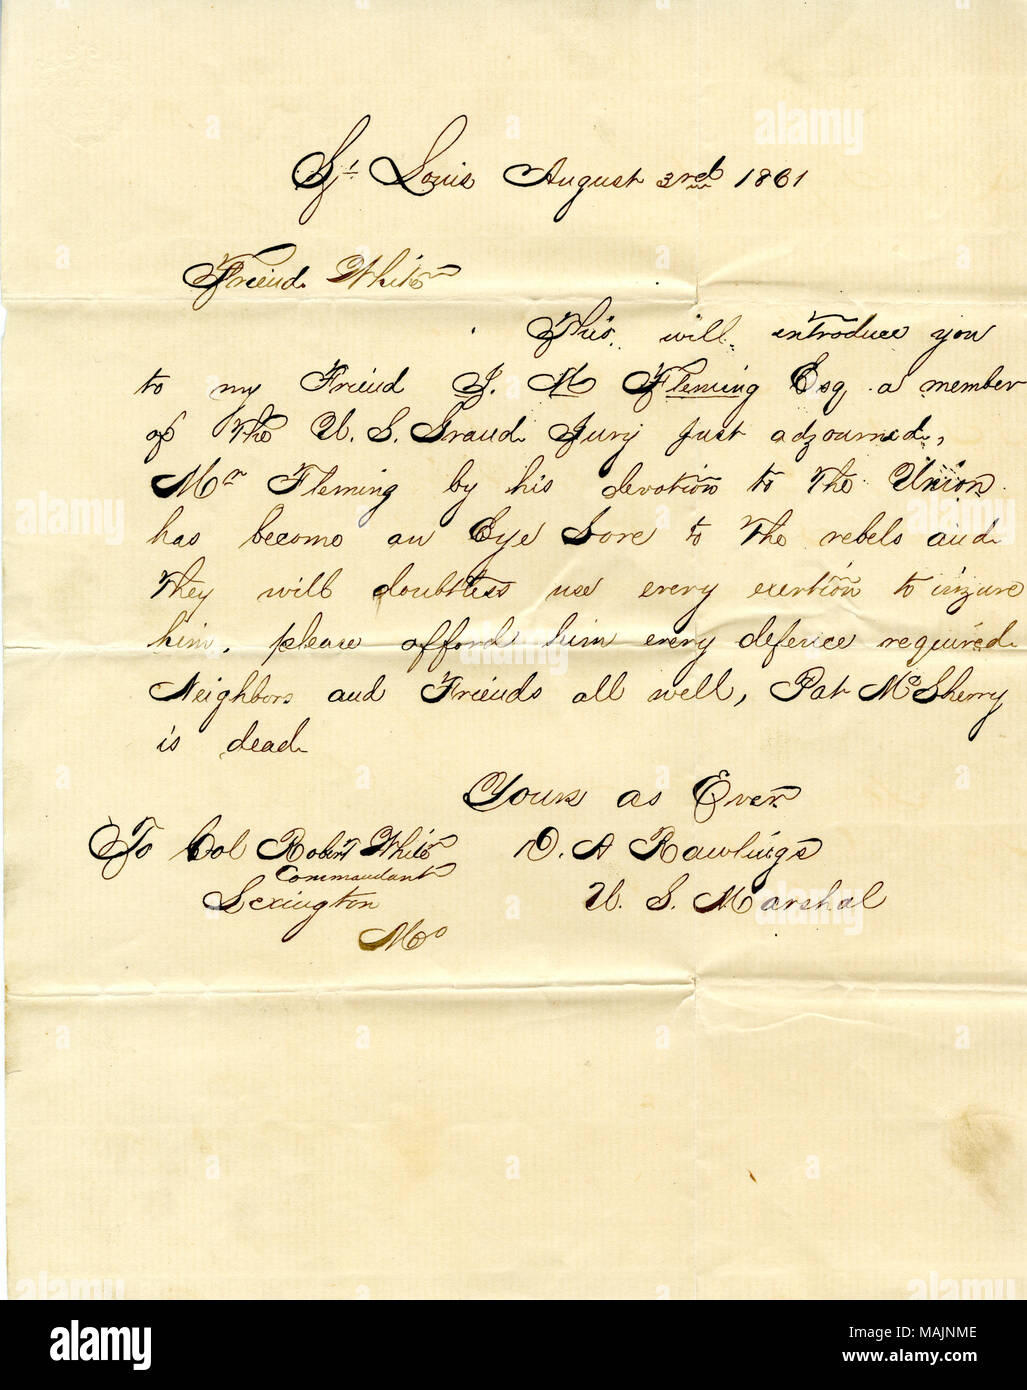 St. Louis August 3rd 1861
Friend White
This will introduce you
to my Friend J. M Fleming Esq. a member
of The U. S. Grand Jury just adjourned,
Mr Fleming by his devotion to The Union
has become an Eye Sore to The rebels and
They will doubtless use every exertion to injure
him. please afford him every defence required
Neighbors and Friends all well, Pat McSherry
is dead
Yours as Ever
To Col Robert White D. A Rawlings
Commandant
Lexington U. S. Marshal
Mo
alamy
Image ID: MAJNME
www.alamy.com